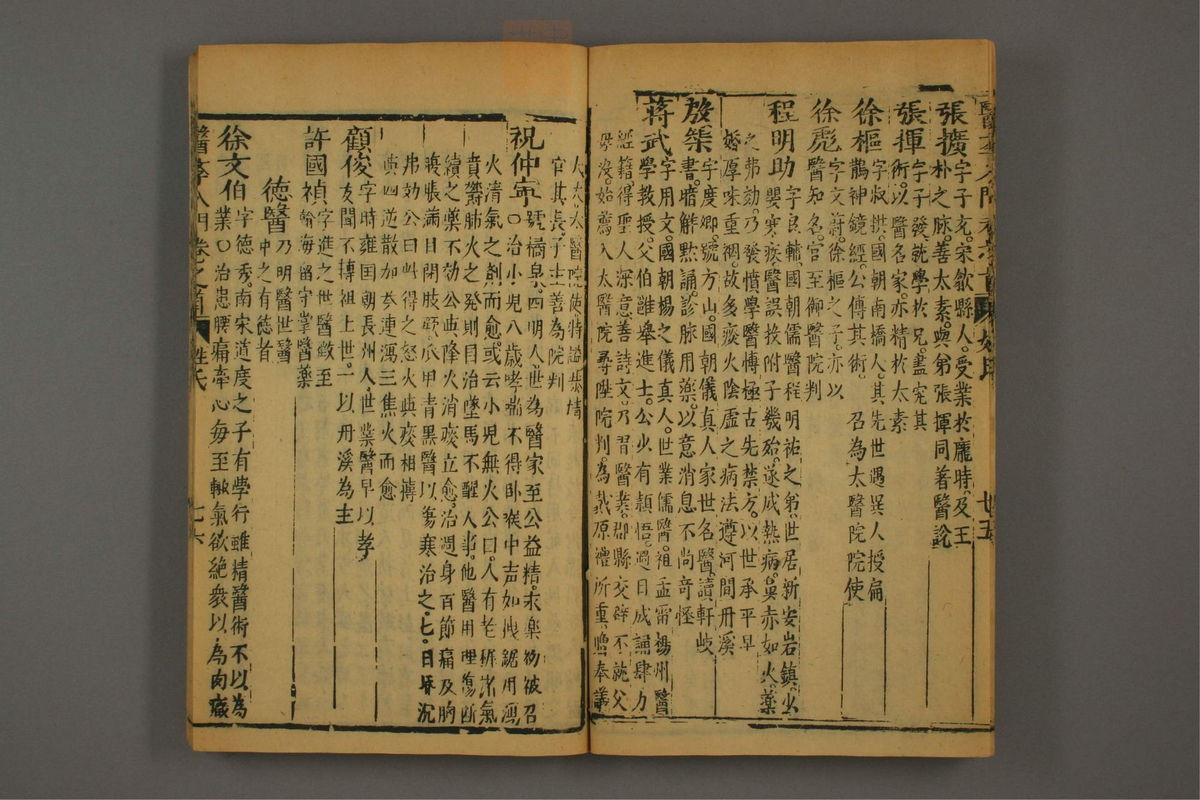 醫學入門 卷之首 姓氏 廿五
張擴 字子充。宋歙縣人。受業於龐時。及王
朴之脉。善太素。與弟張揮同着醫說
張揮 字子發。就學於兄。盡究其
術。以醫名家。亦精於太素
徐樞 字叔拱。國朝南橋人。其先世遇異人授扁
鵲神鏡經。公傳其術。 召為太醫院院使
徐彪 字文蔚。徐樞之子。亦以
醫知名。官至御醫院判
程明助 字良輔。國朝儒醫程明祐之弟。世居新安岩鎮。少
嬰寒疾。醫誤投附子幾殆。遂成熱病。鼻赤如火。藥
之弗効。乃發憤學醫。博極古先禁方。以世承平。早
婚厚味重裀。故多痰火陰虛之病。法遵河間丹溪
殷榘 字度卿。號方山。國朝儀真人。家世名醫。讀軒岐
書。暗解默誦。診脉用藥。以意消息。不尚奇怪
蔣武 字用文。國朝楊之儀真人。世業儒醫。祖孟雷揚州醫
學教授。父伯雝舉進士。公少有頴悟。過目成誦。肆力
經籍。得聖人深意。善詩文。乃習醫業。郡縣交辟。不就。父
母沒。始薦入太醫院。尋陞院判。為戴原禮所重。奉議
大夫。太醫院使。特謚恭靖
官其長。子主善為院判
祝仲寧 號橘泉。四明人。世為醫家。至公益精。求藥物被召
○治小兒八歲哮喘不得卧。喉中声如拽鋸。用瀉
火清氣之劑而愈。或云小兒無火。公曰。人有老稚。諸氣
賁鬱。肺火之發則同。治墜馬不醒人事。他醫用理傷斷
續之藥不効。公與降火消痰立愈。治週身百節痛及胸
腹脹滿。目閉肢厥。爪甲青黑。醫以傷寒治之。七日昏沉
弗効。公曰。此得之怒火與痰相搏
與四逆散加芩連。瀉三焦火而愈
顧俊 字時雍。国朝長州人。世業醫。早以孝
友聞。不搏祖上世。一以丹溪為主
許國禎 字進之。世醫。徵至
翰海。留守。掌醫藥
德醫 乃明醫世醫
中之有德者
徐文伯 字德秀。南宋道度之子。有學行。雖精醫術。不以為
業。○治患腰痛牽心。每至輙氣欲絶。衆以為肉癥
醫學入門 卷之首 姓氏 七六